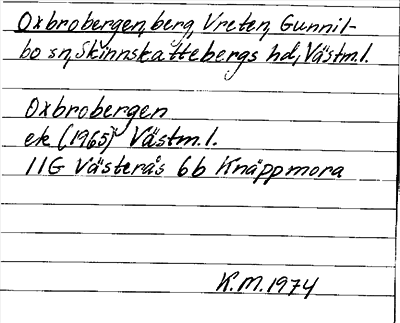 Oxbrobergen, berg, Vreten, Gunnil-
bo sn, Skinnskattebergs hd, Västm.l.
Oxbrobergen
ek (1965) Västm.l.
11G Västerås 6b Knäppmora
K.M. 1974